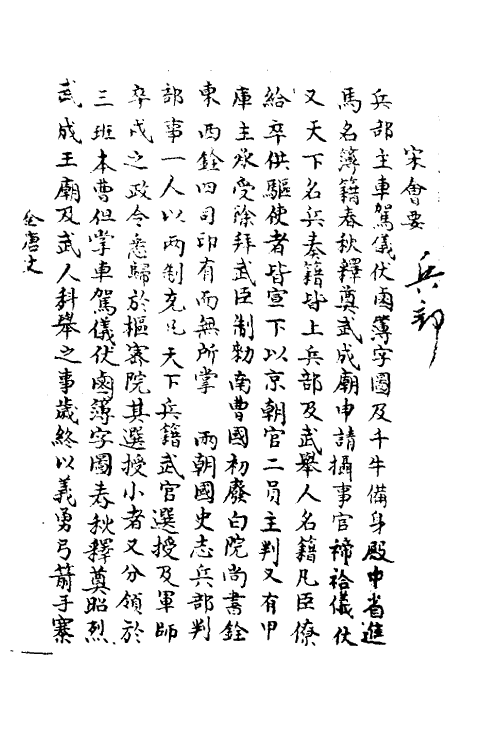 兵部
宋會要
兵部主車駕儀仗鹵簿字圖及千牛備身殿中省進
馬名簿籍春秋釋奠武成廟申請攝事官禘祫儀仗
又天下名兵奏籍皆上兵部及武舉人名籍凡臣僚
給卒供驅使者皆宣下以京朝官二員主判又有甲
庫主承受除拜武臣制勑南曹國初廢白院尚書銓
東西銓四司印有而無所掌 兩朝國史志兵部判
部事一人以兩制充凡天下兵籍武官選授及軍師
卒戍之政令悉歸於樞密院其選授小者又分領於
三班本曹但掌車駕儀仗鹵簿字圖春秋釋奠昭烈
武成王廟及武人科舉之事歲終以義勇弓箭手寨
全唐文